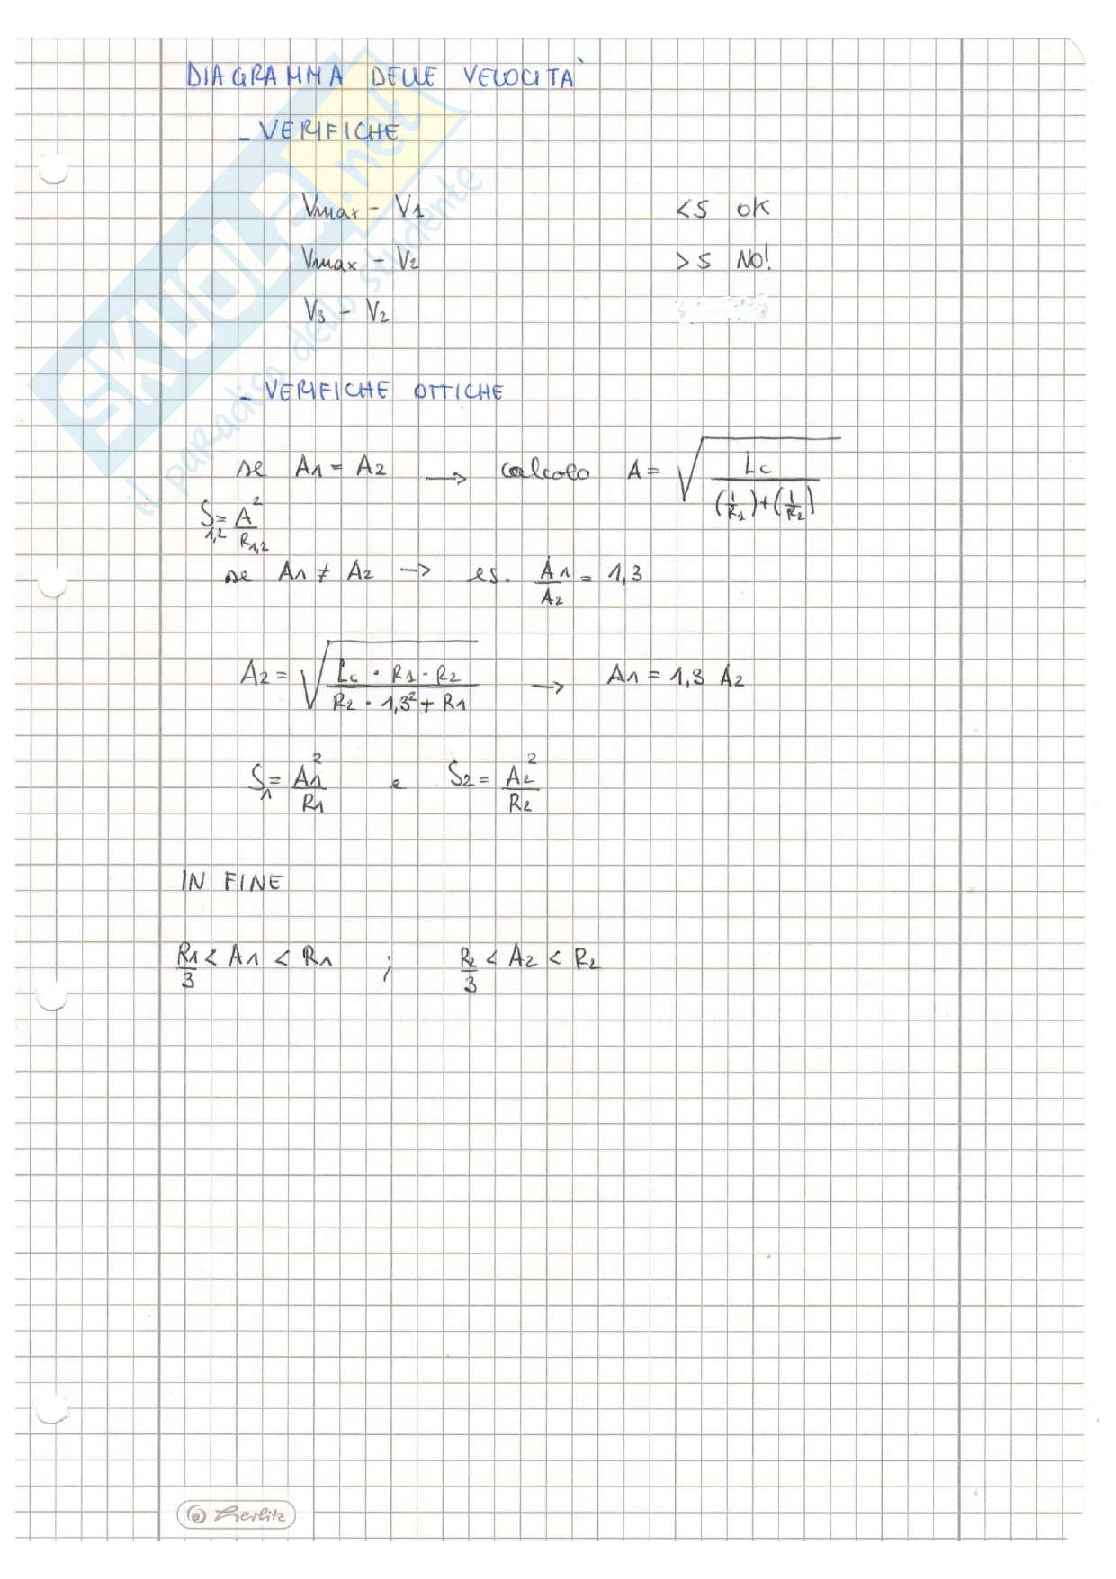 DIAGRAMMA DELLE VELOCITÀ
- VERIFICHE
Vmax - V1 <5 OK
Vmax - V2 >5 NO!
V3 - V2
- VERIFICHE OTTICHE
se A1 = A2 → calcolo A = √(Lc / ((1/R1)+(1/R2)))
S1,2 = A²/R1,2
se A1 ≠ A2 → es. A1/A2 = 1,3
A2 = √(Lc · R1 · R2 / (R2 · 1,3² + R1)) → A1 = 1,3 A2
S1 = A1²/R1 e S2 = A2²/R2
IN FINE
R1/3 < A1 < R1 ; R2/3 < A2 < R2
SKUOLA.net
il paradiso dello studente
herlitz